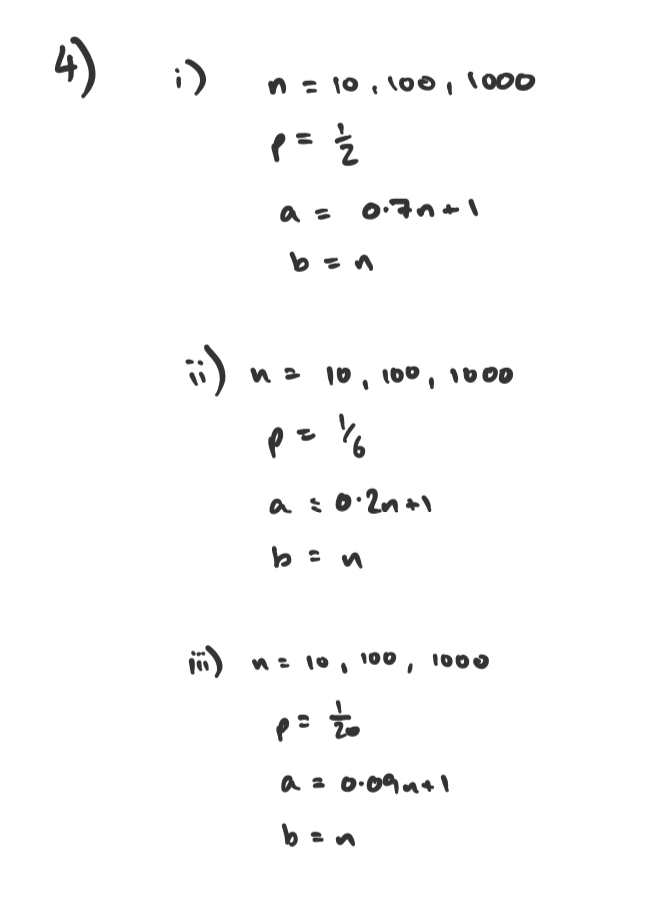 4) i) n = 10, 100, 1000
p = 1/2
a = 0.7n+1
b = n
ii) n = 10, 100, 1000
p = 1/6
a = 0.2n+1
b = n
iii) n = 10, 100, 1000
p = 1/20
a = 0.09n+1
b = n